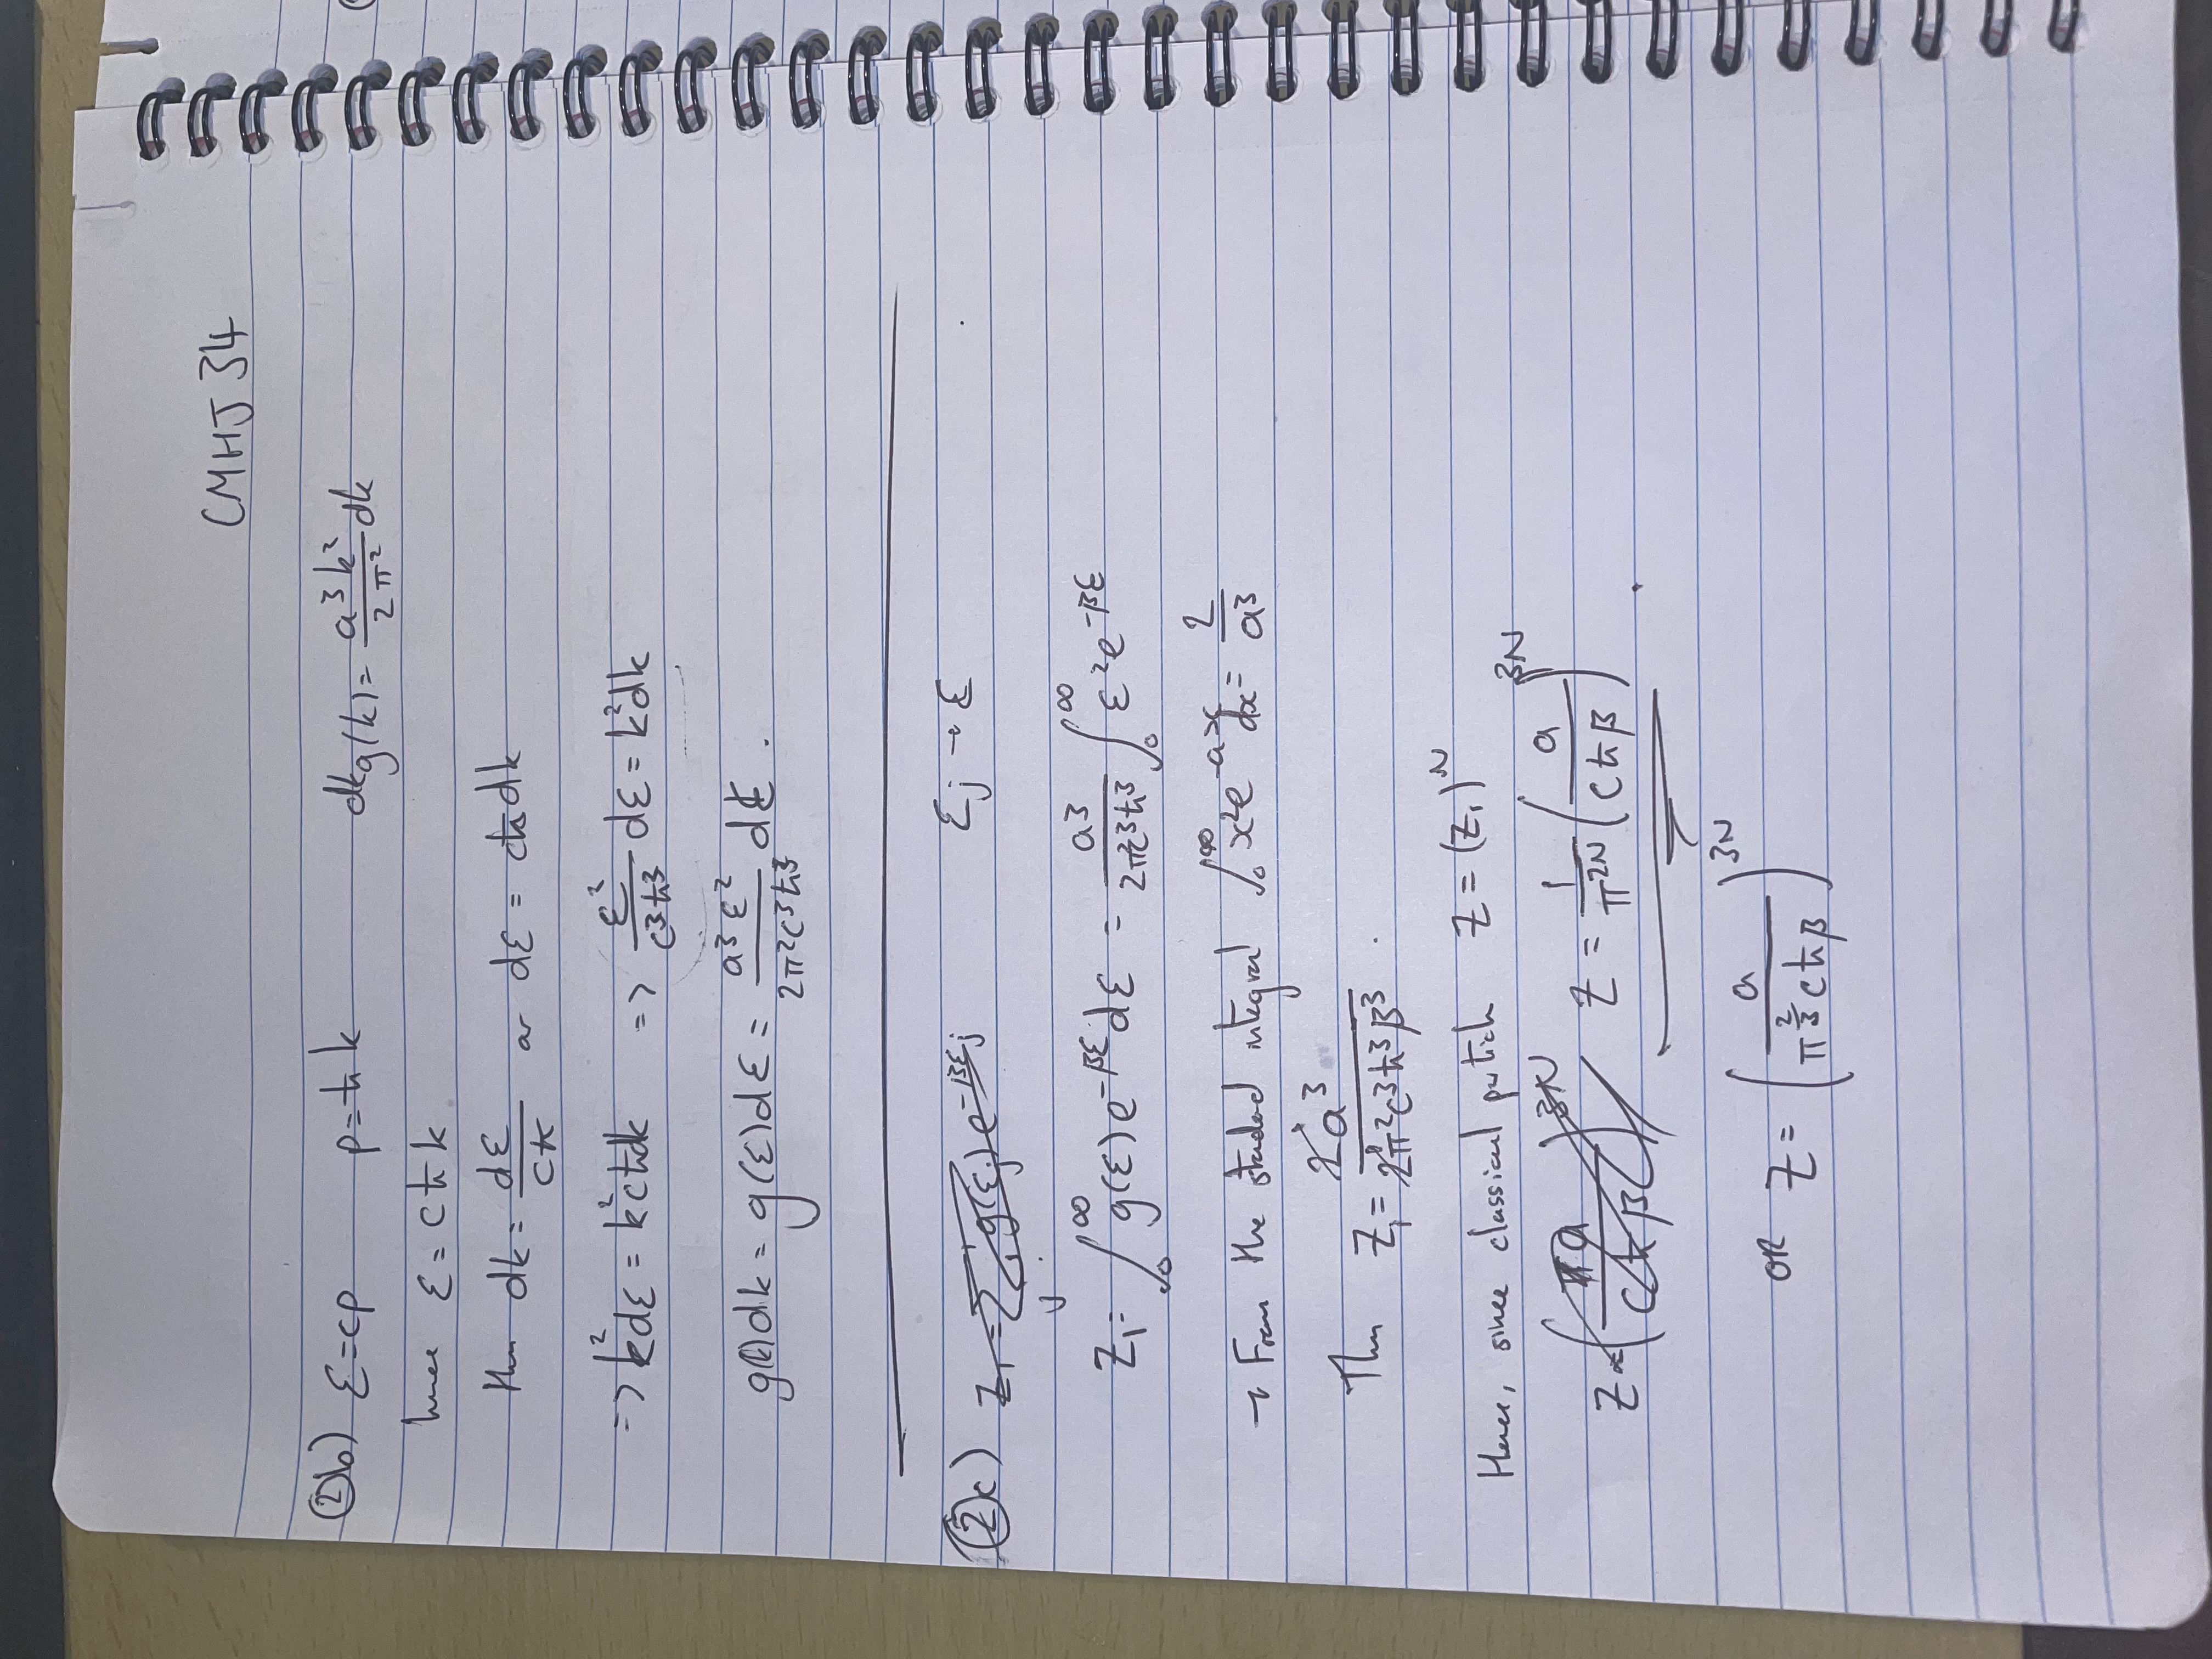 CMHJ34
②b) ε=cp p=ħk dkg(k)= a³k²/2π² dk
hence ε=cħk
then dk = dε/cħ or dε = cħdk
=> k²dε = k²cħdk => ε²/c³ħ³ dε = k²dk
g(k)dk = g(ε)dε = a³ε²/2π²c³ħ³ dε.
②c) Z₁ = Σj g(εj) e^-βεj εj → ε
Z₁= ∫₀^∞ g(ε)e^-βε dε = a³/2π²c³ħ³ ∫₀^∞ ε²e^-βε
→ From the standard integral ∫₀^∞ x²e^-ax dx = 2/a³
Then Z₁= 2a³/2π²c³ħ³β³.
Hence, since classical particle Z = (Z₁)^N
Z = (πa/cħβ)^3N Z = 1/π^2N (a/cħβ)^3N.
OR Z = (a/π^2/3 cħβ)^3N